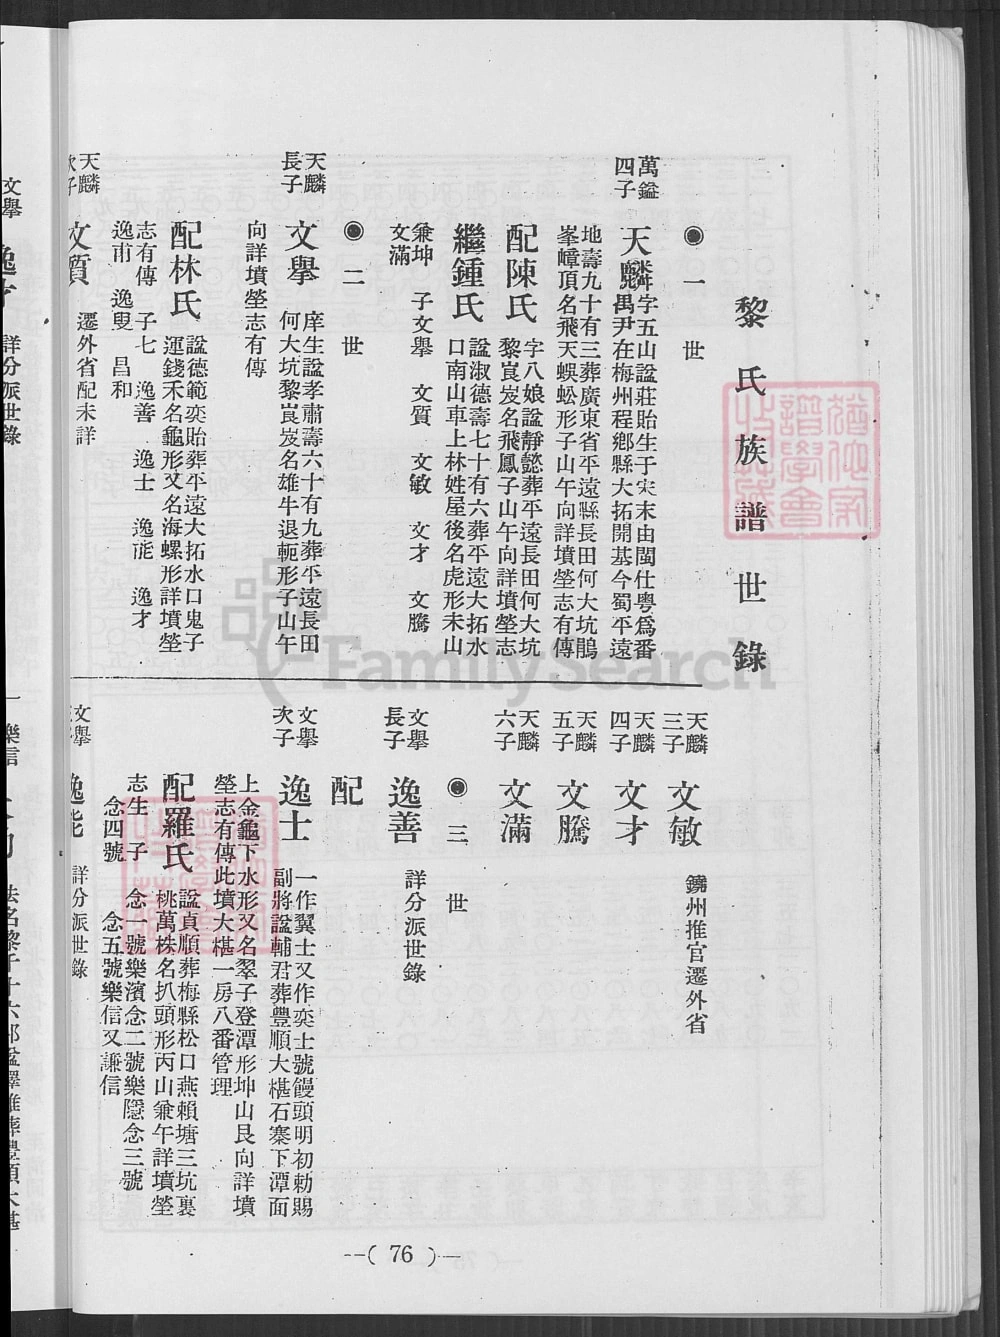 黎氏族譜世錄
◉一世
萬鎰
四子
天麟
字五山諡莊貽生于宋末由閩仕粵爲番
禺尹在梅州程鄉縣大拓開基今蜀平遠
地壽九十有三葬廣東省平遠縣長田何大坑鵑
峯嶂頂名飛天蜈蚣形子山午向詳墳塋志有傳
配陳氏
字八娘諡靜懿葬平遠長田何大坑
黎崀岌名飛鳳子山午向詳墳塋志
繼鍾氏
諡淑德壽七十有六葬平遠大拓水
口南山車上林姓屋後名虎形未山
兼坤 子文擧 文質 文敏 文才 文騰
文滿
◉二世
天麟
長子
文擧
庠生諡孝肅壽六十有九葬平遠長田
何大坑黎崀岌名雄牛退軛形子山午
向詳墳塋志有傳
配林氏
諡德範奕貽葬平遠大拓水口鬼子
運錢禾名龜形又名海螺形詳墳塋
志有傳 子七 逸善 逸士 逸能 逸才
逸甫 逸叟 昌和
天麟
次子
文質
遷外省配未詳
天麟
三子
文敏
鐃州推官遷外省
天麟
四子
文才
天麟
五子
文騰
天麟
六子
文滿
◉三世
文擧
長子
逸善
詳分派世錄
配
文擧
次子
逸士
一作翼士又作奕士號饅頭明初勅賜
副將諡輔君葬豐順大椹石寨下潭面
上金龜下水形又名翠子登潭形坤山艮向詳墳
塋志有傳此墳大椹一房八番管理
配羅氏
諡貞順葬梅縣松口燕賴塘三坑裏
桃萬株名扒頭形丙山兼午詳墳塋
志生 子 念一號樂濱念二號樂隱念三號
念四號 念五號樂信又謙信
文擧
逸能
詳分派世錄
--( 76 )--
文擧
詳分派世錄
樂信